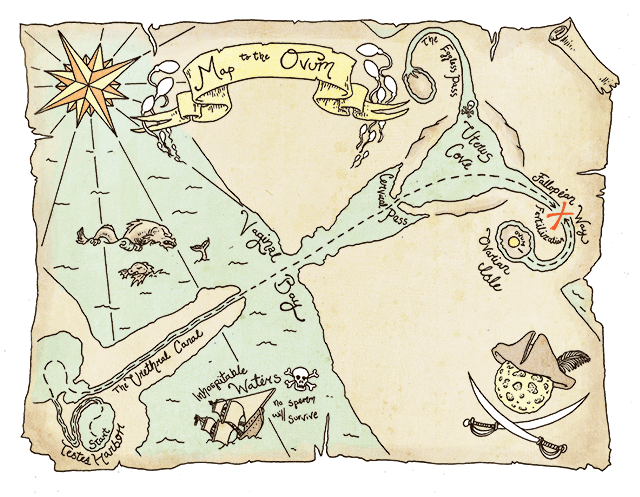 Map to the Ovum
The Eggless Pass
Uterus
Cove
Cervical Pass
Fallopean Way
Fertilization
Ovarian
Isle
Vaginal
Bay
The Urethral Canal
Inhospitable
Waters
no sperm
will survive
Start
Testes Harbor